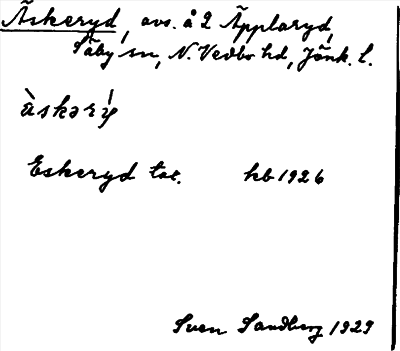 Äskeryd, avs. å 2 Äpplaryd,
Säby sn, N. Vedbo hd, Jönk. l.
Eskeryd
kb 1926
Sven Sandberg 1929